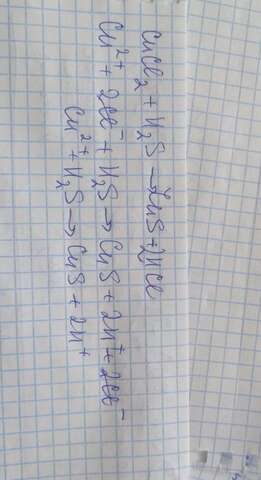 CuCl₂ + H₂S → CuS + 2HCl
Cu²⁺ + 2Cl⁻ + H₂S → CuS + 2H⁺ + 2Cl⁻
Cu²⁺ + H₂S → CuS + 2H⁺